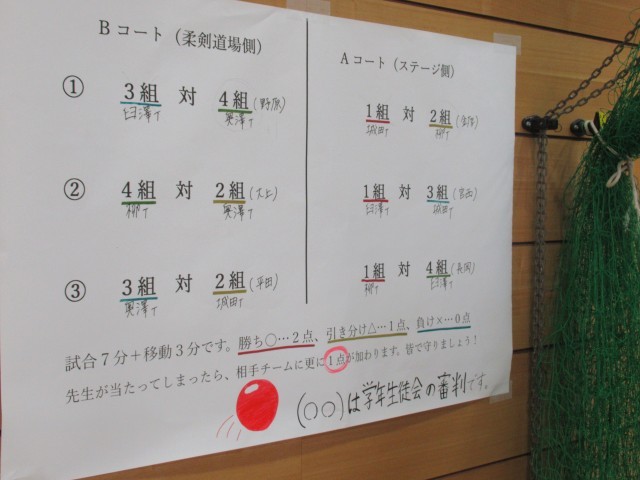 Bコート（柔剣道場側）
① 3組 対 4組(野原)
臼澤T 奥澤T
② 4組 対 2組(大上)
柳T 奥澤T
③ 3組 対 2組(平田)
奥澤T 城田T
Aコート（ステージ側）
1組 対 2組
城田T 柳T
1組 対 3組
臼澤T 城田T
1組 対 4組(長岡)
柳T 臼澤T
試合7分＋移動3分です。勝ち○…2点、引き分け△…1点、負け×…0点
先生が当たってしまったら、相手チームに更に1点が加わります。皆で守りましょう！
(○○)は学年生徒会の審判です。